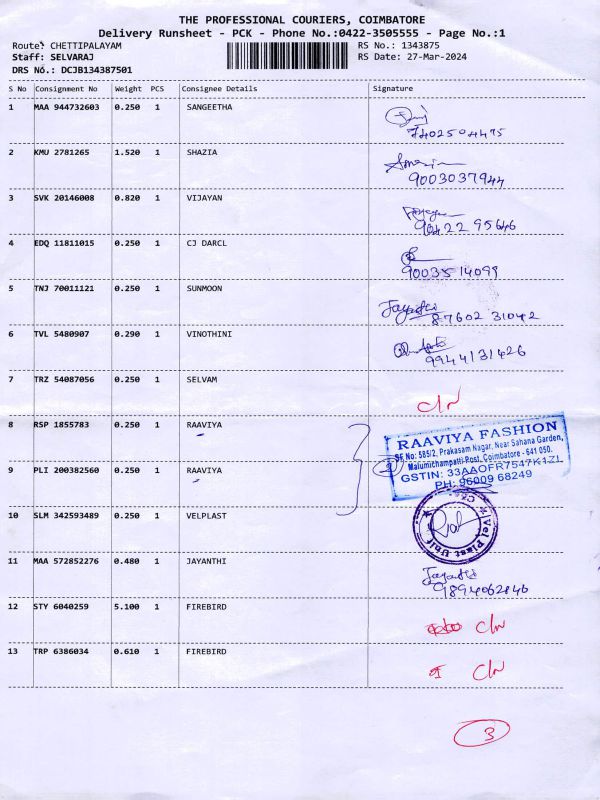 THE PROFESSIONAL COURIERS, COIMBATORE
Delivery Runsheet - PCK - Phone No.:0422-3505555 - Page No.:1
Route: CHETTIPALAYAM RS No.: 1343875
Staff: SELVARAJ RS Date: 27-Mar-2024
DRS No.: DCJB134387501
S No Consignment No Weight PCS Consignee Details Signature
1 MAA 944732603 0.250 1 SANGEETHA
7402504475
2 KMU 2781265 1.520 1 SHAZIA
9003037944
3 SVK 20146008 0.820 1 VIJAYAN
90422 95646
4 EDQ 11811015 0.250 1 CJ DARCL
9003514099
5 TNJ 70011121 0.250 1 SUNMOON
87602 31042
6 TVL 5480907 0.290 1 VINOTHINI
9944131426
7 TRZ 54087056 0.250 1 SELVAM
C/N
8 RSP 1855783 0.250 1 RAAVIYA
RAAVIYA FASHION
SF No: 585/2, Prakasam Nagar, Near Sahana Garden,
Malumichampatti Post, Coimbatore - 641 050.
GSTIN: 33AAOFR7547K1ZL
PH: 96009 68249
9 PLI 200382560 0.250 1 RAAVIYA
10 SLM 342593489 0.250 1 VELPLAST
Vel Plast
11 MAA 572852276 0.480 1 JAYANTHI
12 STY 6040259 5.100 1 FIREBIRD
C/N
13 TRP 6386034 0.610 1 FIREBIRD
C/N
3